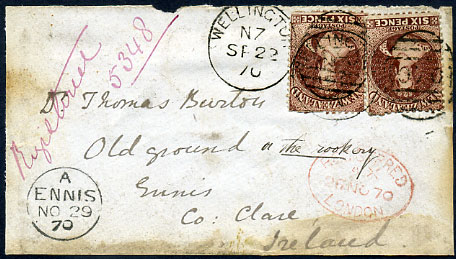 Registered
5348
WELLINGTON
N7
SP 22
70
SIX PENCE
SIX PENCE
NEW ZEALAND
NEW ZEALAND
Dr Thomas Burton
Old ground or the rookery
Ennis
Co: Clare
Ireland
A
ENNIS
NO 29
70
REGISTERED
NO 70
LONDON